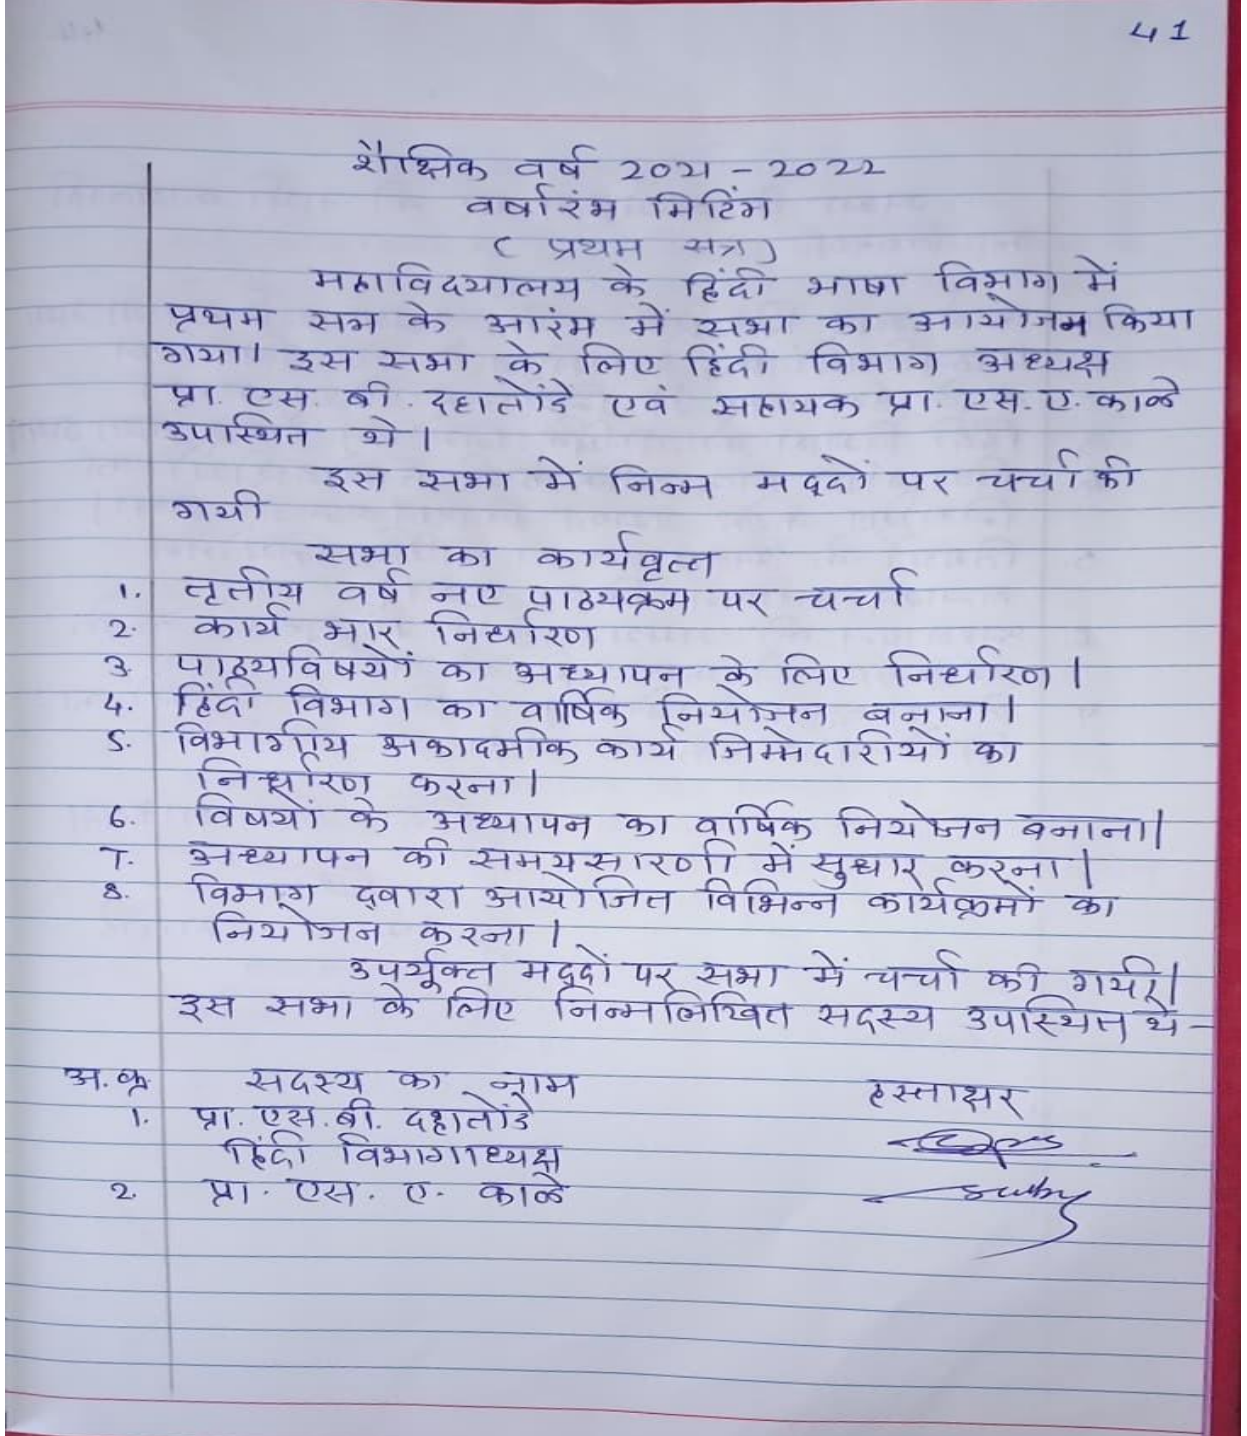 41
शैक्षिक वर्ष 2021 - 2022
वर्षारंभ मिटिंग
( प्रथम सत्र )
महाविद्यालय के हिंदी भाषा विभाग में
प्रथम सत्र के आरंभ में सभा का आयोजन किया
गया। इस सभा के लिए हिंदी विभाग अध्यक्ष
प्रा. एस. बी. दहातोंडे एवं सहायक प्रा. एस. ए. काळे
उपस्थित थे ।
इस सभा में निन्म मद्दों पर चर्चा की
गयी
सभा का कार्यवृत्त
1. तृतीय वर्ष नए पाठ्यक्रम पर चर्चा
2. कार्य भार निर्धारण
3. पाठ्यविषयों का अध्यापन के लिए निर्धारण ।
4. हिंदी विभाग का वार्षिक नियोजन बनाना ।
5. विभागीय अकादमीक कार्य जिम्मेदारीयों का
निर्धारण करना ।
6. विषयों के अध्यापन का वार्षिक नियोजन बनाना ।
7. अध्यापन की समयसारणी में सुधार करना ।
8. विभाग द्वारा आयोजित विभिन्न कार्यक्रमों का
नियोजन करना ।
उपर्युक्त मद्दों पर सभा में चर्चा की गयी ।
इस सभा के लिए निन्मलिखित सदस्य उपस्थित थे -
अ. क्र. सदस्य का नाम हस्ताक्षर
1. प्रा. एस. बी. दहातोंडे
हिंदी विभागाध्यक्ष
2. प्रा. एस. ए. काळे